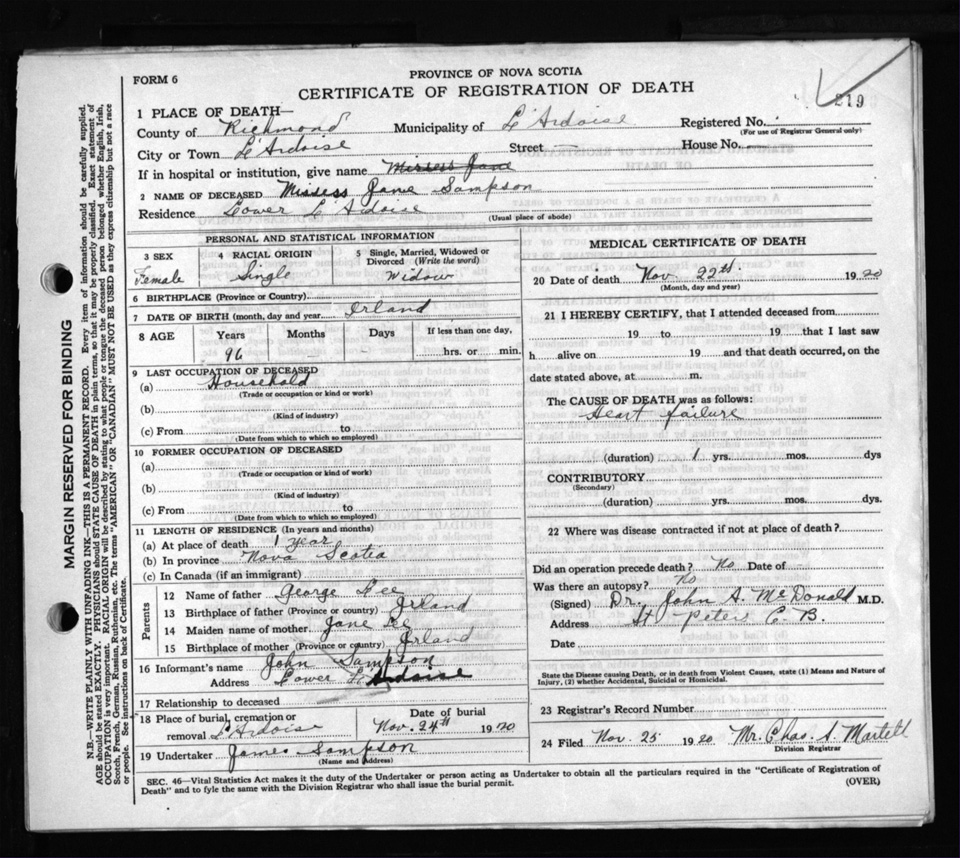 FORM 6
PROVINCE OF NOVA SCOTIA
CERTIFICATE OF REGISTRATION OF DEATH
219
1 PLACE OF DEATH—
County of Richmond Municipality of L'Ardoise Registered No.
(For use of Registrar General only)
City or Town L'Ardoise Street — House No.
If in hospital or institution, give name Misress Jane
2 NAME OF DECEASED Missess Jane Sampson
Residence Lower L'Ardoise
(Usual place of abode)
PERSONAL AND STATISTICAL INFORMATION
3 SEX 4 RACIAL ORIGIN 5 Single, Married, Widowed or Divorced (Write the word)
Female Single Widow
6 BIRTHPLACE (Province or Country)
7 DATE OF BIRTH (month, day and year) Irland
8 AGE Years Months Days If less than one day,
96 — — hrs. or min.
9 LAST OCCUPATION OF DECEASED
(a) Household
(Trade or occupation or kind or work)
(b)
(Kind of industry)
(c) From to
(Date from which to which so employed)
10 FORMER OCCUPATION OF DECEASED
(a)
(Trade or occupation or kind of work)
(b)
(Kind of industry)
(c) From to
(Date from which to which so employed)
11 LENGTH OF RESIDENCE (In years and months)
(a) At place of death 1 year
(b) In province Nova Scotia
(c) In Canada (if an immigrant)
Parents
12 Name of father George Lee
13 Birthplace of father (Province or country) Irland
14 Maiden name of mother Jane Lee
15 Birthplace of mother (Province or country) Irland
16 Informant's name John Sampson
Address Lower L'Ardoise
17 Relationship to deceased
18 Place of burial, cremation or removal L'Ardoise
Date of burial
Nov. 24th 1920
19 Undertaker James Sampson
(Name and Address)
MEDICAL CERTIFICATE OF DEATH
20 Date of death Nov 22th. 1920
(Month, day and year)
21 I HEREBY CERTIFY, that I attended deceased from
19 to 19 that I last saw
h alive on 19 and that death occurred, on the
date stated above, at m.
The CAUSE OF DEATH was as follows:
Heart failure
(duration) 1 yrs. mos. dys
CONTRIBUTORY
(Secondary)
(duration) yrs. mos. dys.
22 Where was disease contracted if not at place of death?
Did an operation precede death? No Date of
Was there an autopsy? No
(Signed) Dr. John A. McDonald M.D.
Address St Peters C. B.
Date
State the Disease causing Death, or in death from Violent Causes, state (1) Means and Nature of
Injury, (2) whether Accidental, Suicidal or Homicidal.
23 Registrar's Record Number
24 Filed Nov. 25 1920 Mr. Chas. S. Martell
Division Registrar
SEC. 46—Vital Statistics Act makes it the duty of the Undertaker or person acting as Undertaker to obtain all the particulars required in the "Certificate of Registration of
Death" and to fyle the same with the Division Registrar who shall issue the burial permit.
(OVER)
MARGIN RESERVED FOR BINDING
N.B.—WRITE PLAINLY WITH UNFADING INK—THIS IS A PERMANENT RECORD. Every item of information should be carefully supplied.
AGE should be stated EXACTLY. PHYSICIANS should STATE CAUSE OF DEATH in plain terms, so that it may be properly classified. Exact statement of
OCCUPATION is very important. RACIAL ORIGIN will be described by stating to what people or tongue the deceased person belonged whether English, Irish,
Scotch, French, German, Russian, Ruthenian, etc. The terms "AMERICAN" OR "CANADIAN" MUST NOT BE USED as they express citizenship but not a race
or people. See instructions on back of Certificate.